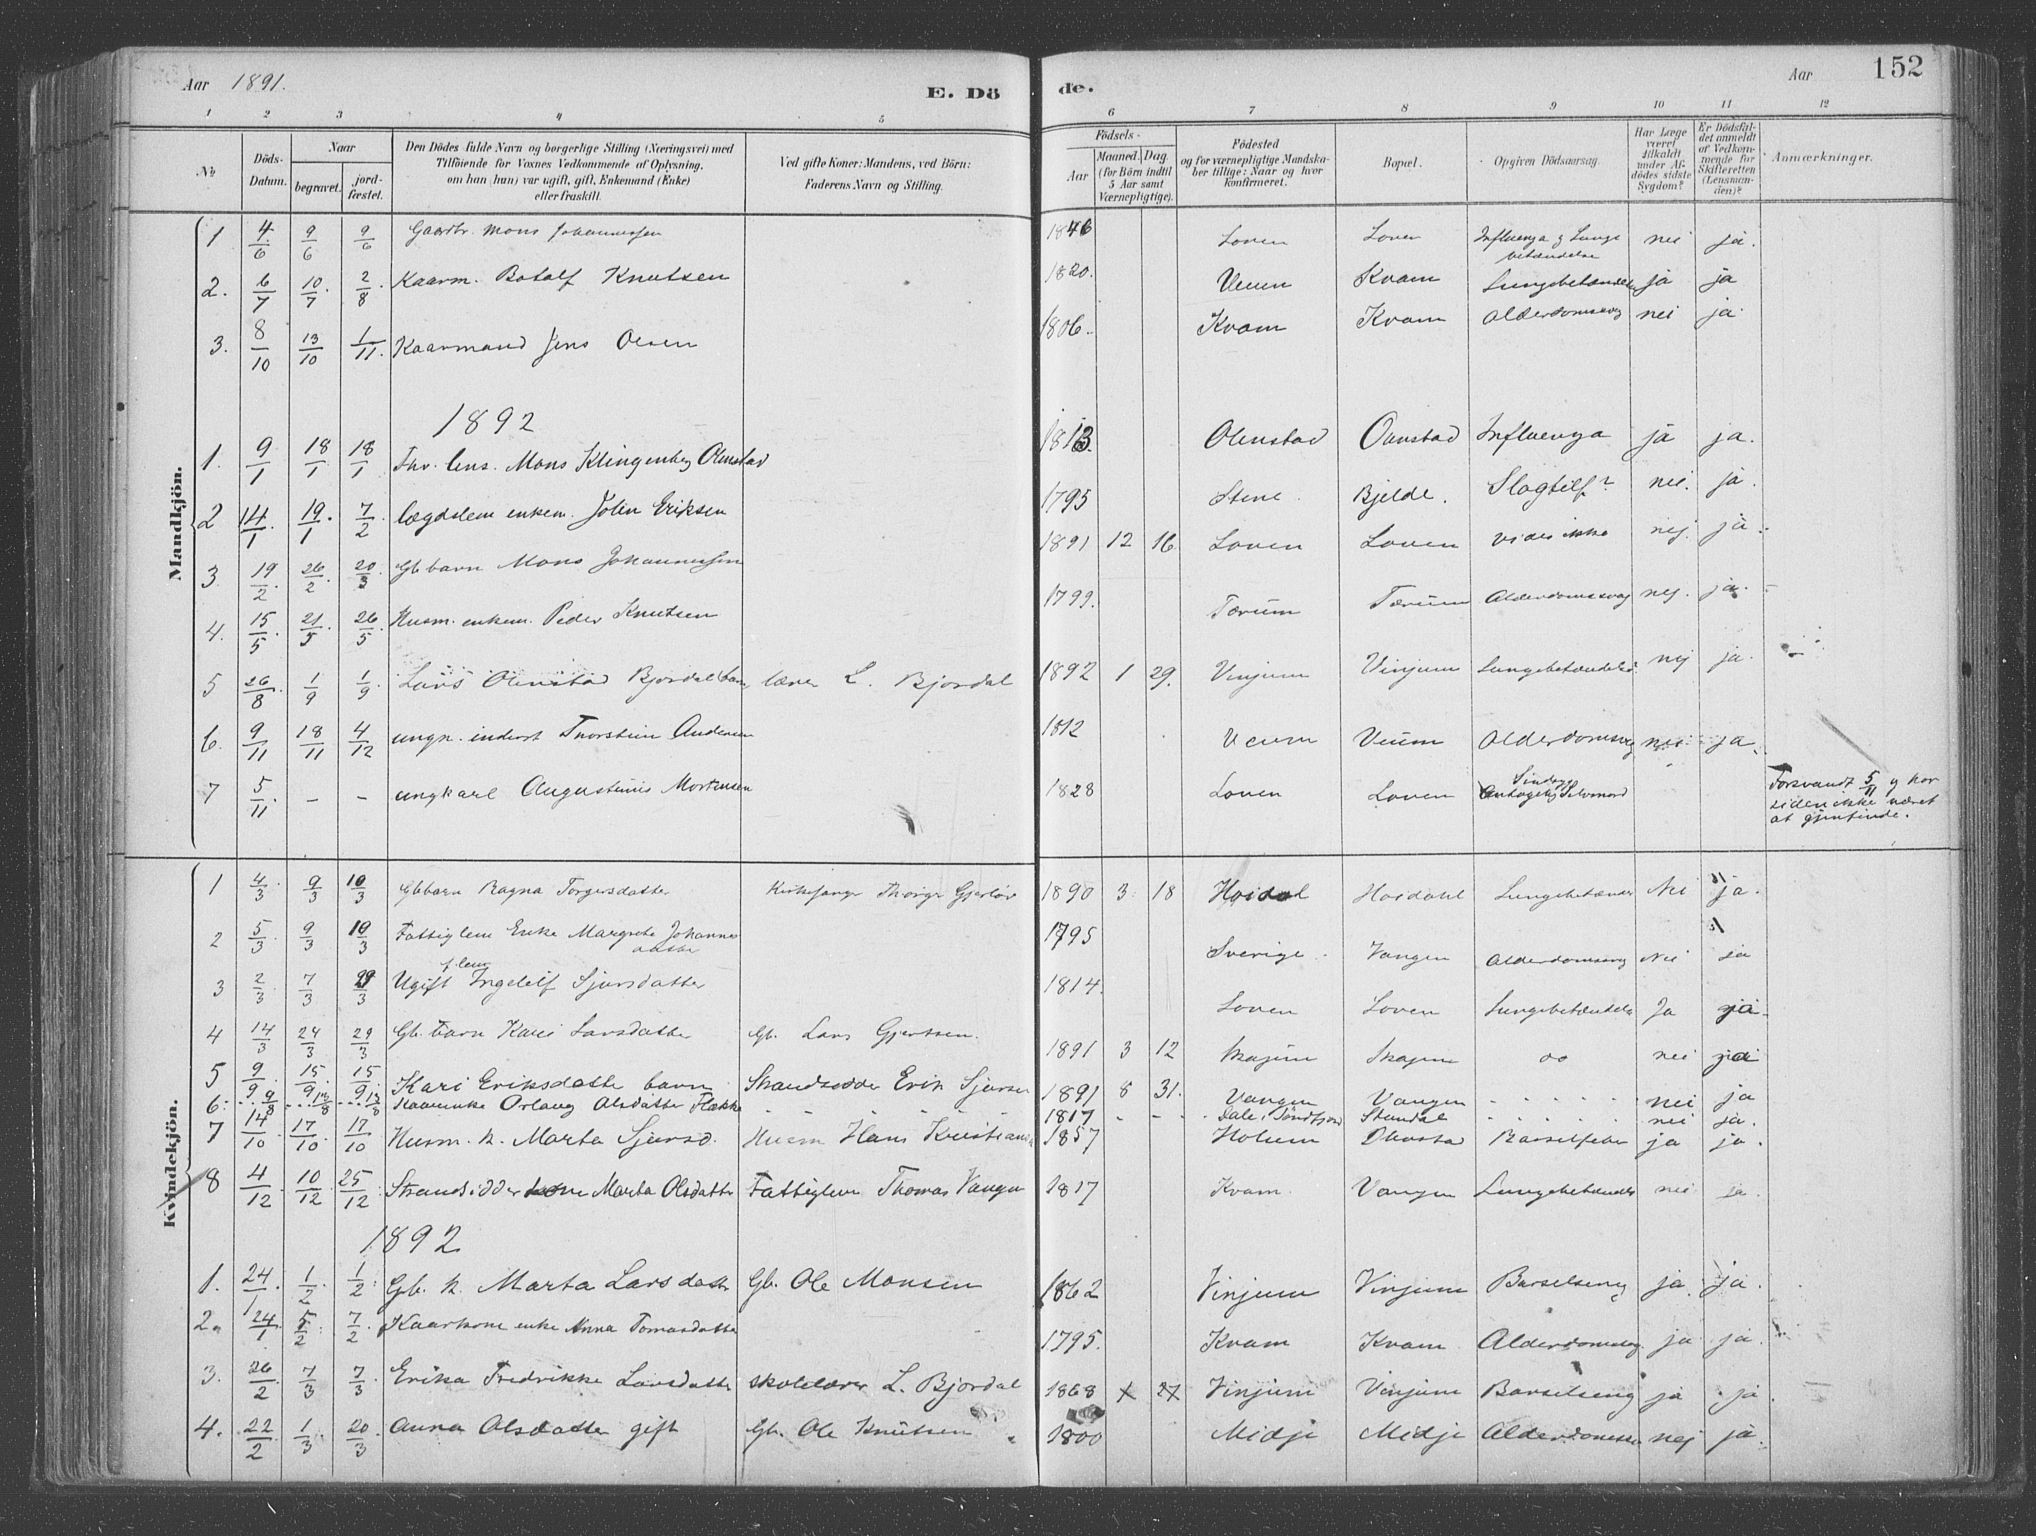 Aar 1891.
E. Dö
de.
Aar
152
1 2 3 4 5 6 7 8 9 10 11 12
№
Döds-Datum.
Naar
begravet.
jord-fæstet.
Den Dödes fulde Navn og borgerlige Stilling (Næringsvei) med
Tilföiende for Voxnes Vedkommende af Oplysning,
om han (hun) var ugift, gift, Enkemand (Enke)
eller fraskilt.
Ved gifte Koner: Mandens, ved Börn:
Faderens Navn og Stilling.
Födsels-
Aar
Maaned. Dag
(for Börn indtil
5 Aar samt
Værnepligtige).
Födested
og for værnepligtige Mandska-
ber tillige: Naar og hvor
konfirmeret.
Bopæl.
Opgiven Dödsaarsag.
Har Læge
været
tilkaldt
under Af-
dödes sidste
Sygdom?
Er Dödsfal-
det anmeldt
af Vedkom-
mende for
Skifteretten
(Lensman-
den)?
Anmærkninger.
Mandkjön.
1 4/6 9/6 9/6 Gaardbr. Mons Johannessen 1846 Loven Loven Influenza & Lunge betændelse nei ja.
2. 6/7 10/7 2/8 Kaarm. Botolf Knutsen 1820. Veum Kvam Lungebetændelse ja ja
3. 8/10 13/10 1/11. Kaarmand Jens Olsen 1806. Kvam Kvam Alderdomssvag nei ja.
1892
1. 9/1 18/1 18/1 Fhv. lens. Mons Klingenberg Olmstad 1813 Olmstad Olmstad Influenza ja ja.
2 14/1 19/1 7/2 Lægdslem enkem. John Eriksen 1795 Stene. Bjelde. Slagtilf? nei. ja.
3 19/2 26/2 20/3 Gb barn Mons Johannessen 1891 12 16 Loven Loven vides ikke nej. ja.
4. 15/5 21/5 26/5 Husm. enkem. Peder Knutsen 1799. Tærum Tærum Alderdomssvag nej. ja.
5 26/8 1/9 1/9 Lars Olmstad Bjordal barn, lærer L. Bjordal 1892 1 29. Vinjum Vinjum Lungebetændelse nej ja.
6. 9/11 18/11 4/12 ungk. inderst Thorstein Andersen 1812 Veum Veum Alderdomssvag nei ja.
7 5/11 - - ungkarl Augustinus Mortensen 1828 Loven Loven Sindsyg Antagelig Selvmord Forsvandt 5/11 & har
siden ikke været
at gjenfinde.
Kvindekjön.
1 4/3 9/3 10/3 Gbbarn Ragna Torgersdatter Kirkesanger Thorger Gjerløv 1890 3 18 Hoidal Hoidahl Lungebetændelse Nei ja.
2 5/3 9/3 10/3 Fattiglem Enke Margrete Johannes datter 1795 Sverige. Vangen Alderdomssvag Nei ja
3 2/3 7/3 29/3 Ugift f.lem Ingelelf Sjursdatter 1814. Loven Loven Lungebetændelse Ja ja
4 14/3 24/3 29/3 Gb. barn Kari Larsdatter Gb. Lars Gjertsen. 1891 3 12 Skajem Skajem oo nei ja
5 9/9 15/9 15/9 Kari Eriksdatte barn Strandsidder Erik Sjursen 1891 8 31. Vangen Vangen - - - - - nei ja
6: 9/8 13/8 13/8 Kaarenke Orlaug Olsdatter Flække - - - 1817 - - Dale i Søndfjord Stundal - - - - - nei ja.
7 14/10 17/10 17/10 Husm. k. Marta Sjursd. Husm Hans Kristiansen 1857 Holum Barselfeber ja ja.
8 4/12 10/12 25/12 Strandsidder kone Marta Olsdatter Fattiglem Thomas Vangen 1817 Kvam. Vangen Lungebetændelse nei ja.
1892
1. 24/1 1/2 1/2 Gb. k. Marta Larsdatter Gb. Ole Monsen 1862 Vinjum Vinjum Barselseng ja. ja.
2. 24/1 5/2 7/2 Kaarkone enke Anna Tomasdatter 1795. Kvam Kvam Alderdomssvag ja ja.
3. 26/2 7/3 7/3 Erika Fredrikke Larsdatter skolelærer L. Bjordal 1868 Vinjum Vinjum Barselseng ja ja
4. 22/2 1/3 20/3 Anna Olsdatter gift Gb. Ole Knutsen 1800 Midje Midje Alderdomssv nej ja.